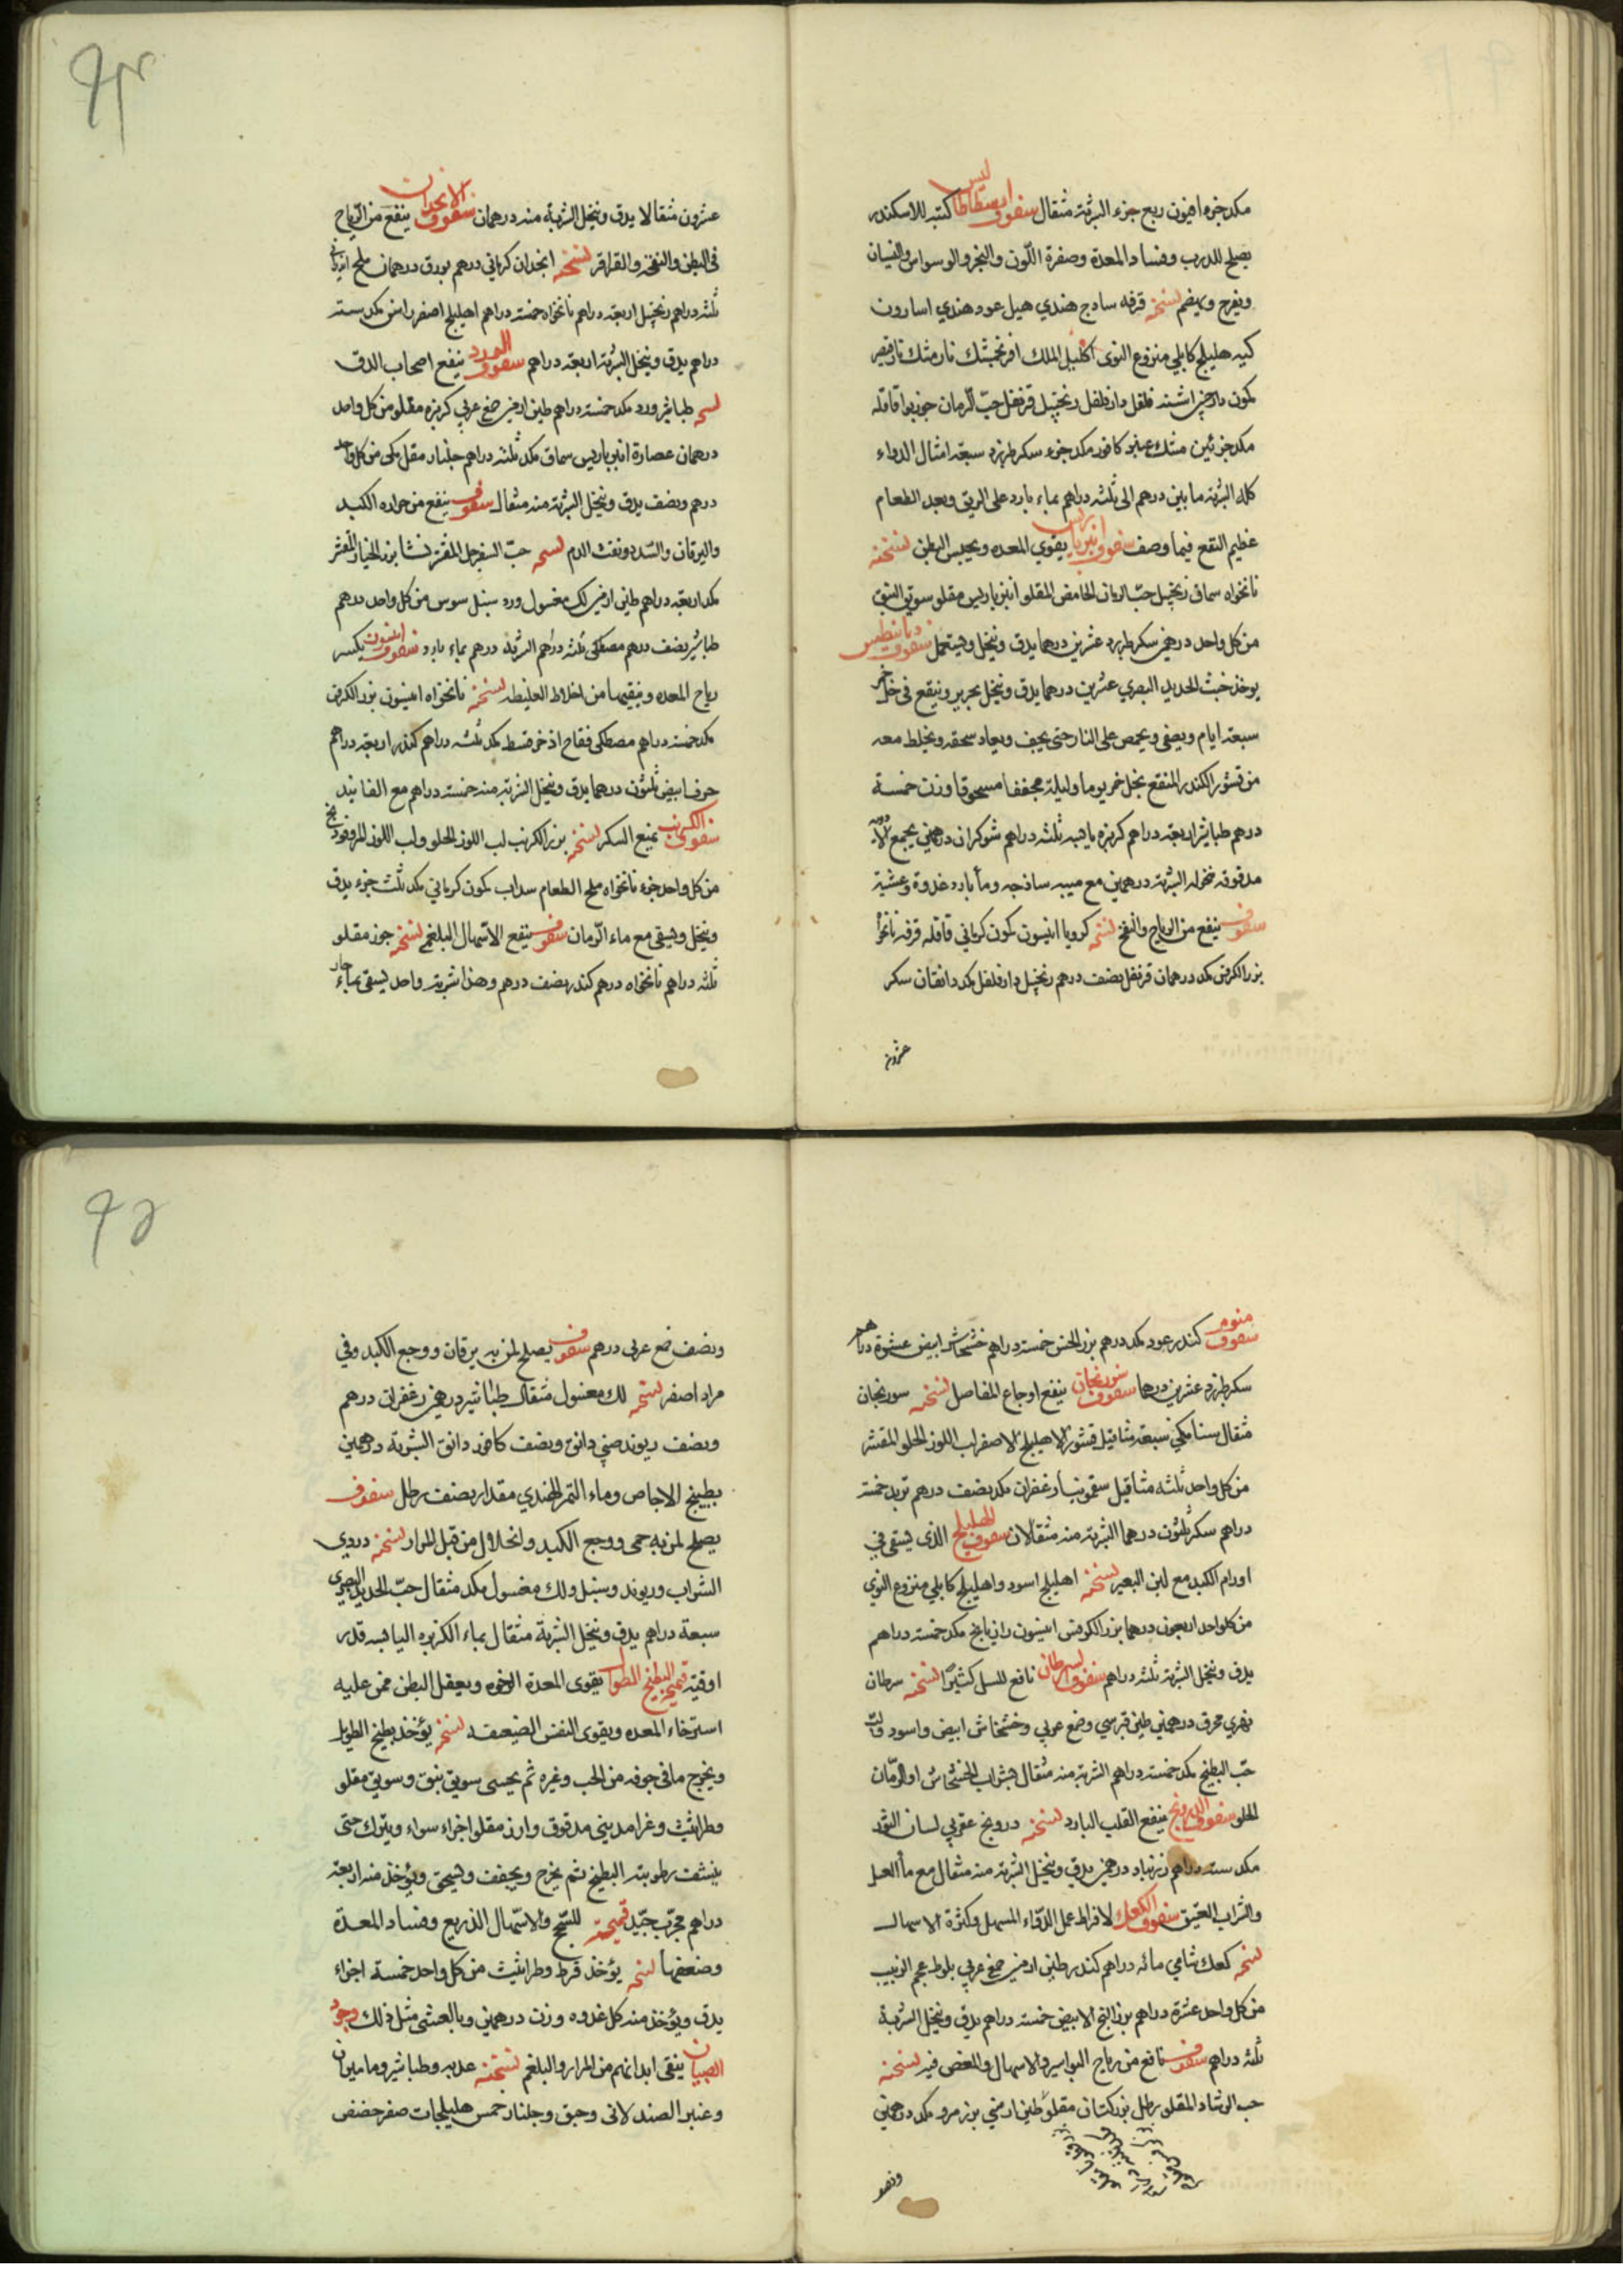 مكد جزء افيون ربع جزء الشربة مثقال سفوف ارسطاطاليس كتبه للاسكندر
يصلح للذرب وفساد المعدة وصفرة اللون والبخر والوسواس والنسيان
ويفرح ويهضم نسخته قرفه ساذج هندي هيل عود هندي اسارون
كيه هليلج كابلي منزوع النوى اكليل الملك افرنجمشك نارمشك
كمون دارچيني اشنه فلفل دارفلفل زنجبيل قرنفل حبّ الرمان جوزبوا قاقله
مكد جزئين مشك عنبر كافور مكد جزء سكر طبرزد سبعة امثال الدواء
كله الشربة ما بين درهم الى ثلثه دراهم بماء بارد على الريق وبعد الطعام
عظيم النفع فيما وصف سفوف انبرباريس يقوي المعده ويحبس البطن نسخته
نانخواه سماق زنجبيل حبّ الرمان الحامض المقلو انبرباريس مقلو سويق النبق
من كل واحد درهمين سكر طبرزد عشرين درهما يدق وينخل ويستعمل سفوف
يوخذ خبث الحديد البصري عشرين درهما يدق وينخل بحرير وينقع في خل خمر
سبعة ايام ويصفى ويحمص على النار حتى يجف ويعاد سحقه ويخلط معه
من قشور الكندر المنقع بخل خمر يوما وليلة مجففا مسحوقا وزن خمسة
درهم طباشير اربعة دراهم كزبره يابسه ثلثه دراهم شوكران درهمين يجمع الادويه
مدقوقه منخوله الشربة درهمين مع ميبه ساذجه وماء بارد غدوة وعشية
سفوف ينفع من الرياح والنفخ نسخته كرويا انيسون كمون كرماني قاقله قرفه نانخواه
بزر الكرفس مكد درهمان قرنفل نصف درهم زنجبيل دارفلفل مكد دانقان سكر
عشرون
عشرون مثقالا يدق وينخل الشربة منه درهمان سفوف الانجدان ينفع من الرياح
في البطن والنفخة والقراقر نسخته انجدان كرماني درهم بورق درهمان ملح اندراني
ثلثه دراهم زنجبيل اربعة دراهم نانخواه خمسة دراهم اهليلج اصفر راسن مكد سته
دراهم يدق وينخل الشربة اربعة دراهم سفوف الورد ينفع اصحاب الدق
نسخه طباشير ورد مكد خمسة دراهم طين ارمني صمغ عربي كزبره مقلو من كل واحد
درهمان عصارة انبرباريس سماق مكد ثلثه دراهم جلنار مقل مكى من كل واحد
درهم ونصف يدق وينخل الشربة منه مثقال سفوف ينفع من حراره الكبد
واليرقان والسدد ونفث الدم نسخه حبّ السفرجل المقشر نشا بزر الخيار المقشر
مكد اربعة دراهم طين ارمني لك مغسول ورد سنبل سوس من كل واحد درهم
طباشير نصف درهم مصطكى ثلثه دراهم الشربة درهم بماء بارد سفوف انيسون يكسر
رياح المعده وينقيها من اخلاط الغليظه نسخته نانخواه انيسون بزر الكرفس
مكد خمسة دراهم مصطكى فقاح اذخر قسط مكد ثلثه دراهم كندر اربعة دراهم
حرف ابيض ثلثون درهما يدق وينخل الشربة منه خمسة دراهم مع الفانيد
سفوف الكرنب يمنع السكر نسخته بزر الكرنب لب اللوز الحلو ولب اللوز المر
من كل واحد جزء نانخواه ملح الطعام سداب كمون كرماني مكد ثلث جزء يدق
وينخل ويسقى مع ماء الرمان سفوف ينفع الاسهال البلغمي نسخته جوز مقلو
ثلثه دراهم نانخواه درهم كندر نصف درهم وهذا شربة واحد يسقى بماء حار
سفوف منوم كندر عود مكد درهم بزر الخس خمسة دراهم خشخاش ابيض عشرة دراهم
سكر طبرزد عشرين درهما سفوف سورنجان ينفع اوجاع المفاصل نسخته سورنجان
مثقال سنا مكي سبعة مثاقيل قشور الاهليلج الاصفر لب اللوز الحلو المقشر
من كل واحد ثلثه مثاقيل سقمونيا زعفران مكد نصف درهم تربد خمسة
دراهم سكر ثلثون درهما الشربة منه مثقالان سفوف الهليلج الذى يسقى في
اورام الكبد مع لبن البعير نسخته اهليلج اسود واهليلج كابلي منزوع النوى
من كلواحد اربعون درهما بزر الكرفس انيسون رازيانج مكد خمسة دراهم
يدق وينخل الشربة ثلثه دراهم سفوف السرطان نافع للسل كثيرا نسخته سرطان
نهري محرق درهمين طين قبرسي وصمغ عربي وخشخاش ابيض واسود ولب
حبّ البطيخ مكد خمسة دراهم الشربة منه مثقال بشراب الخشخاش او الرمان
الحلو سفوف الدرونج ينفع القلب البارد نسخته درونج عقربي لسان الثور
مكد سته دراهم زرنباد درهمين يدق وينخل الشربة منه مثقال مع ماء العسل
والشراب العتيق سفوف الكعك لافراط عمل الدواء المسهل وكثرة الاسهال
نسخه كعك شامي مائه دراهم كندر طين ارمني صمغ عربي بلوط عجم الزبيب
من كل واحد عشرة دراهم بزر البنج الابيض خمسة دراهم يدق وينخل الشربة
ثلثه دراهم سفوف نافع من رياح البواسير والاسهال والمغص فيه نسخته
حب الرشاد المقلو رطل بزر كتان مقلو طين ارمني بزر مرو مكد درهمين
ونصف
ونصف صمغ عربى درهم سفوف يصلح لمن به يرقان ووجع الكبد وفي
مرار اصفر نسخته لك مغسول مثقال طباشير درهمين زعفران درهم
ونصف ريوند صيني دانق ونصف كافور دانق الشربة درهمين
بطبيخ الاجاص وماء التمر الهندي مقدار نصف رطل سفوف
يصلح لمن به حمى ووجع الكبد وانحلال من قبل المرار نسخته دردي
الشراب وريوند وسنبل ولك مغسول مكد مثقال خبث الحديد البصري
سبعة دراهم يدق وينخل الشربة مثقال بماء الكزبره اليابسه قدر
اوقية قميحة البطيخ الطوال يقوى المعدة الرخوه ويعقل البطن ممن عليه
استرخاء المعده ويقوى النفس الضعيفه نسخته يؤخذ بطيخ الطويل
ويخرج ما في جوفه من الحب وغيره ثم يحشى سويق نبق وسويق مقلو
وطراثيث وغرا مديني مدقوق وارز مقلو اجزاء سواء ويترك حتى
ينشف رطوبته البطيخ ثم يخرج ويجفف ويسحق ويؤخذ منه اربعة
دراهم مجرّب جيّد قميحة للسحج والاسهال الذريع وفساد المعدة
وضعفها نسخه يؤخذ قرط وطراثيث من كل واحد خمسة اجزاء
يدق ويؤخذ منه كل غدوه وزن درهمين وبالعشى مثل ذلك وجور
الصبيان ينقى ابدانهم من المرار والبلغم نسخته عدبه وطباشير وماميران
وعنبر الصندلانى وحبق وجلنار خمس هليلجات صفر حضض